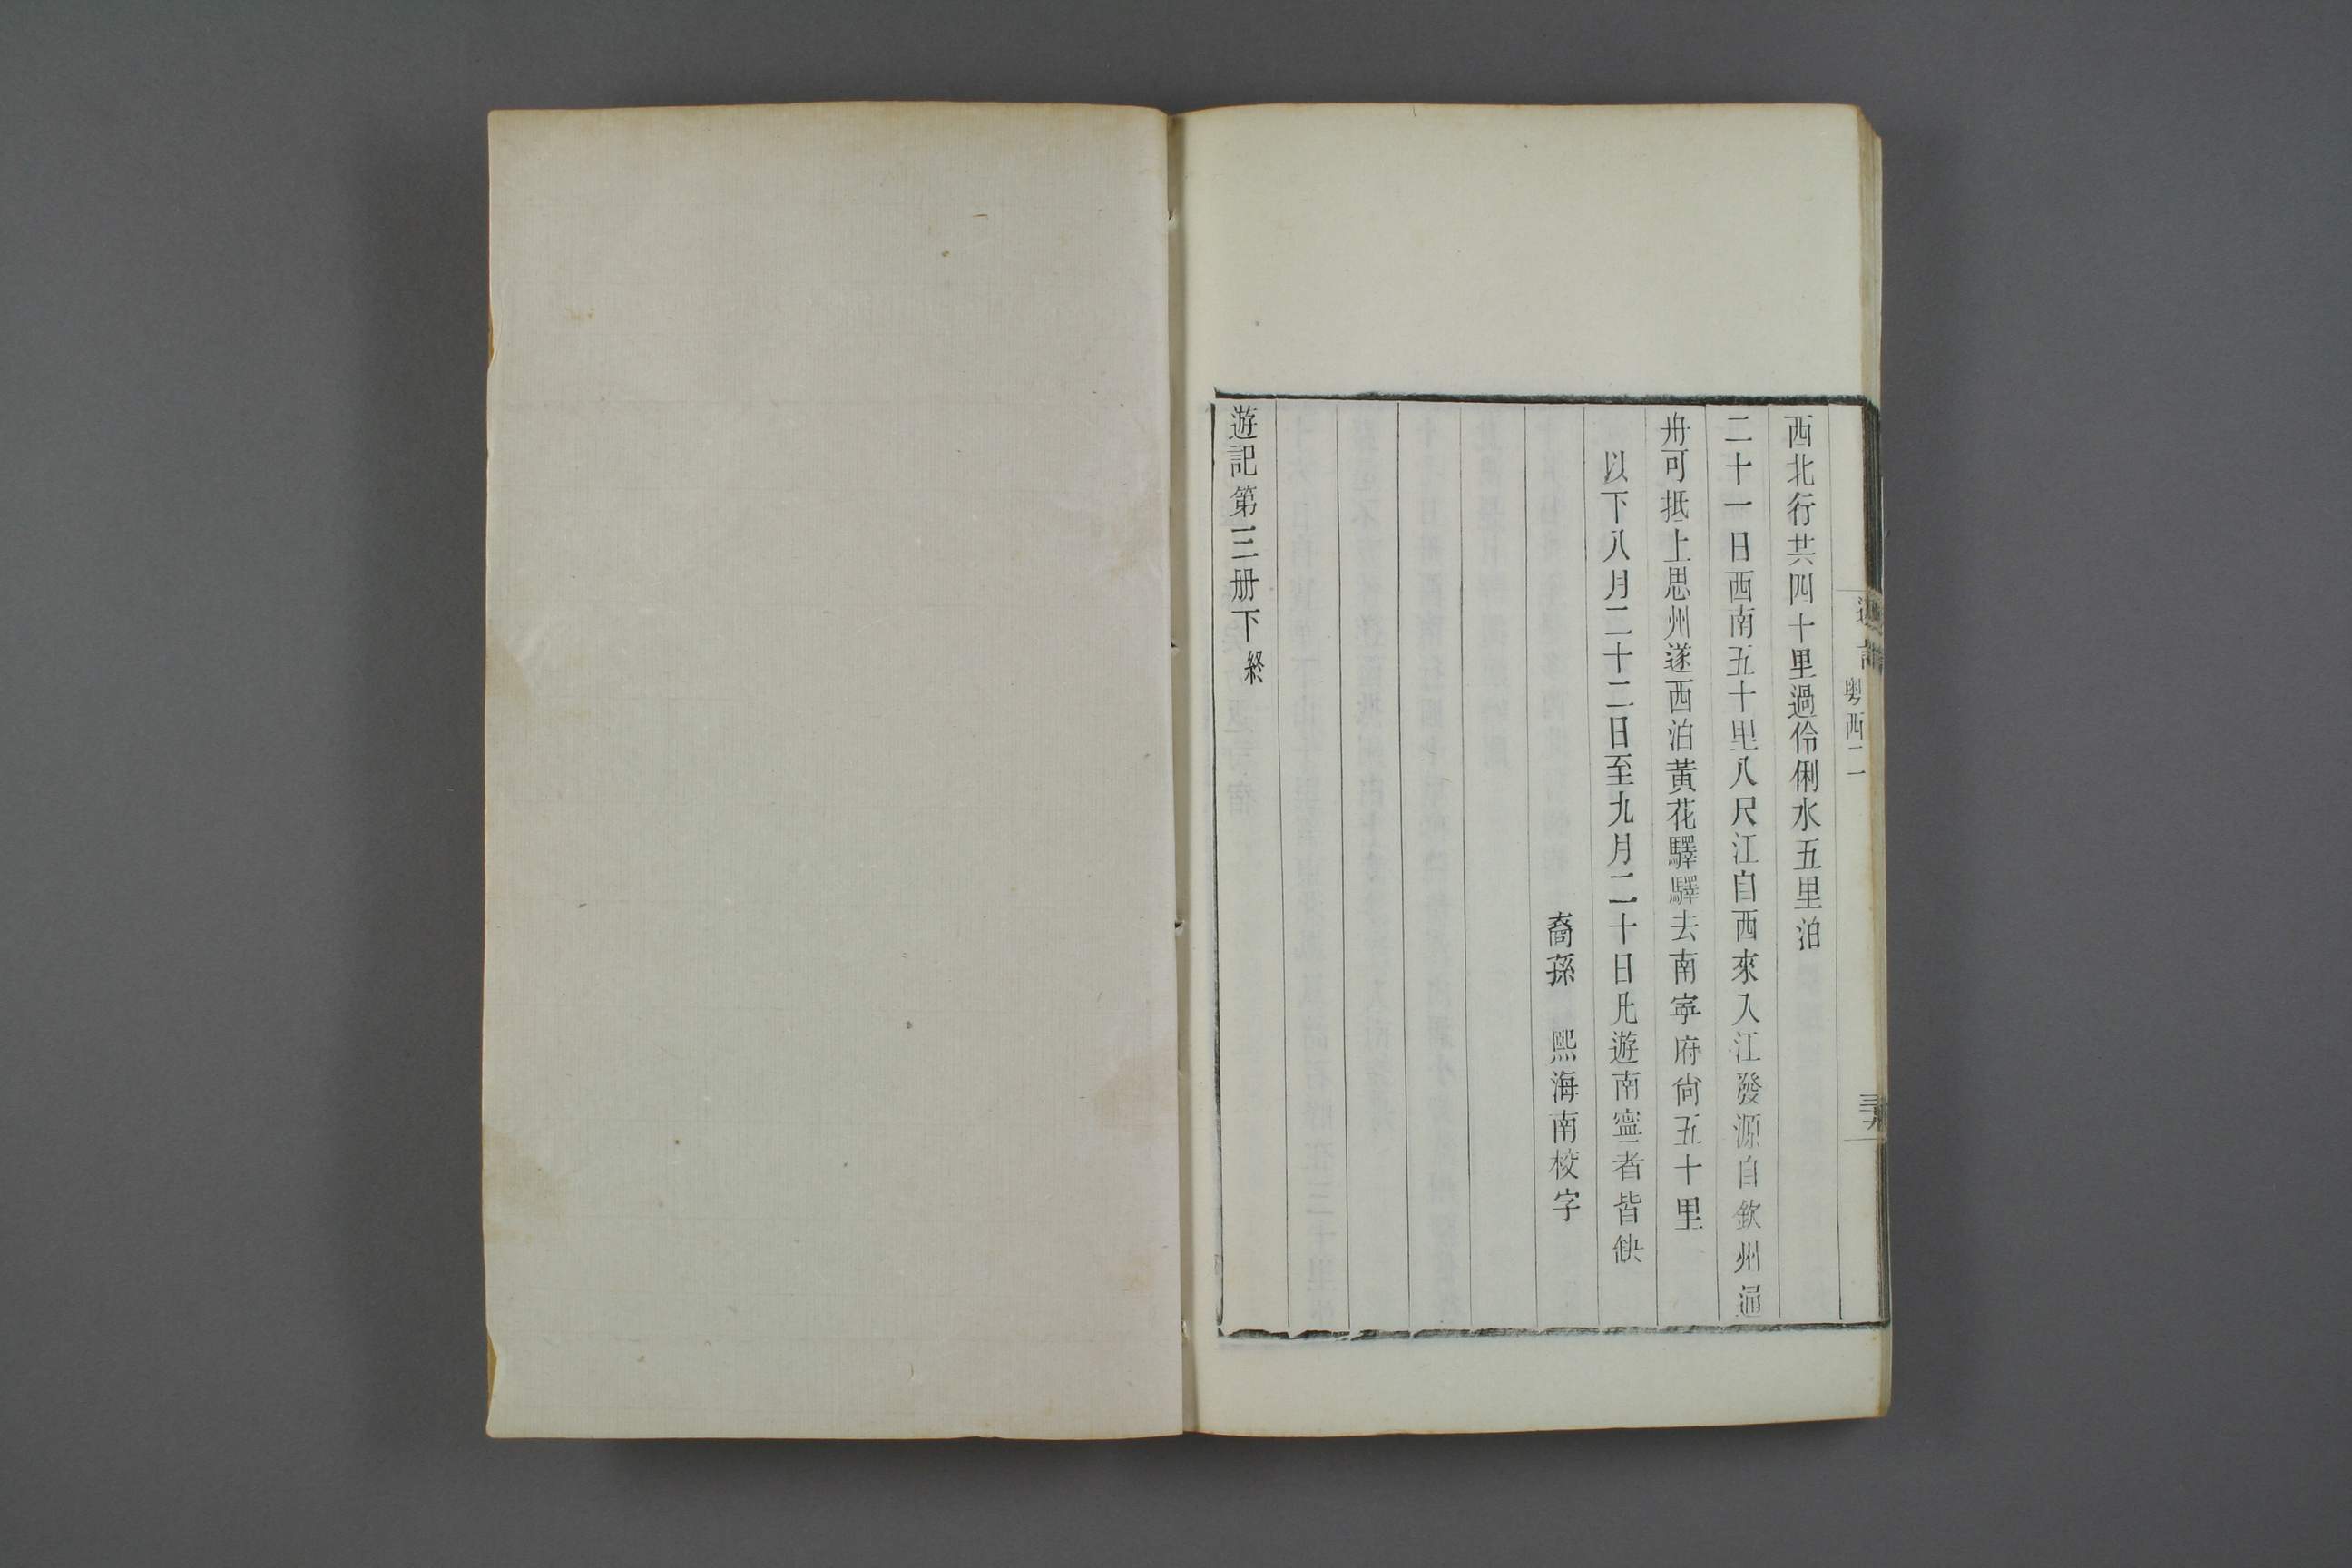 西北行共四十里過伶俐水五里泊
二十一日西南五十里八尺江自西來入江發源自欽州通
舟可抵上思州遂西泊黃花驛驛去南寧府尙五十里
以下八月二十二日至九月二十日凡遊南寧者皆缺
裔孫 熙海南校字
遊記第三册下終
粤西二